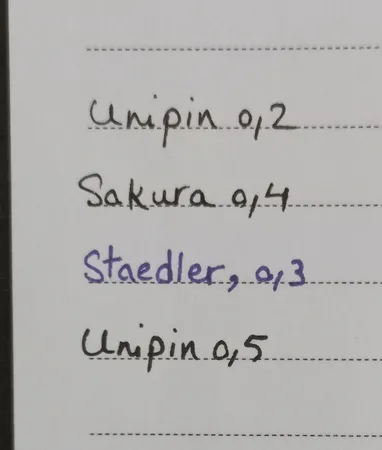 Unipin 0,2
Sakura 0,4
Staedler, 0,3
Unipin 0,5